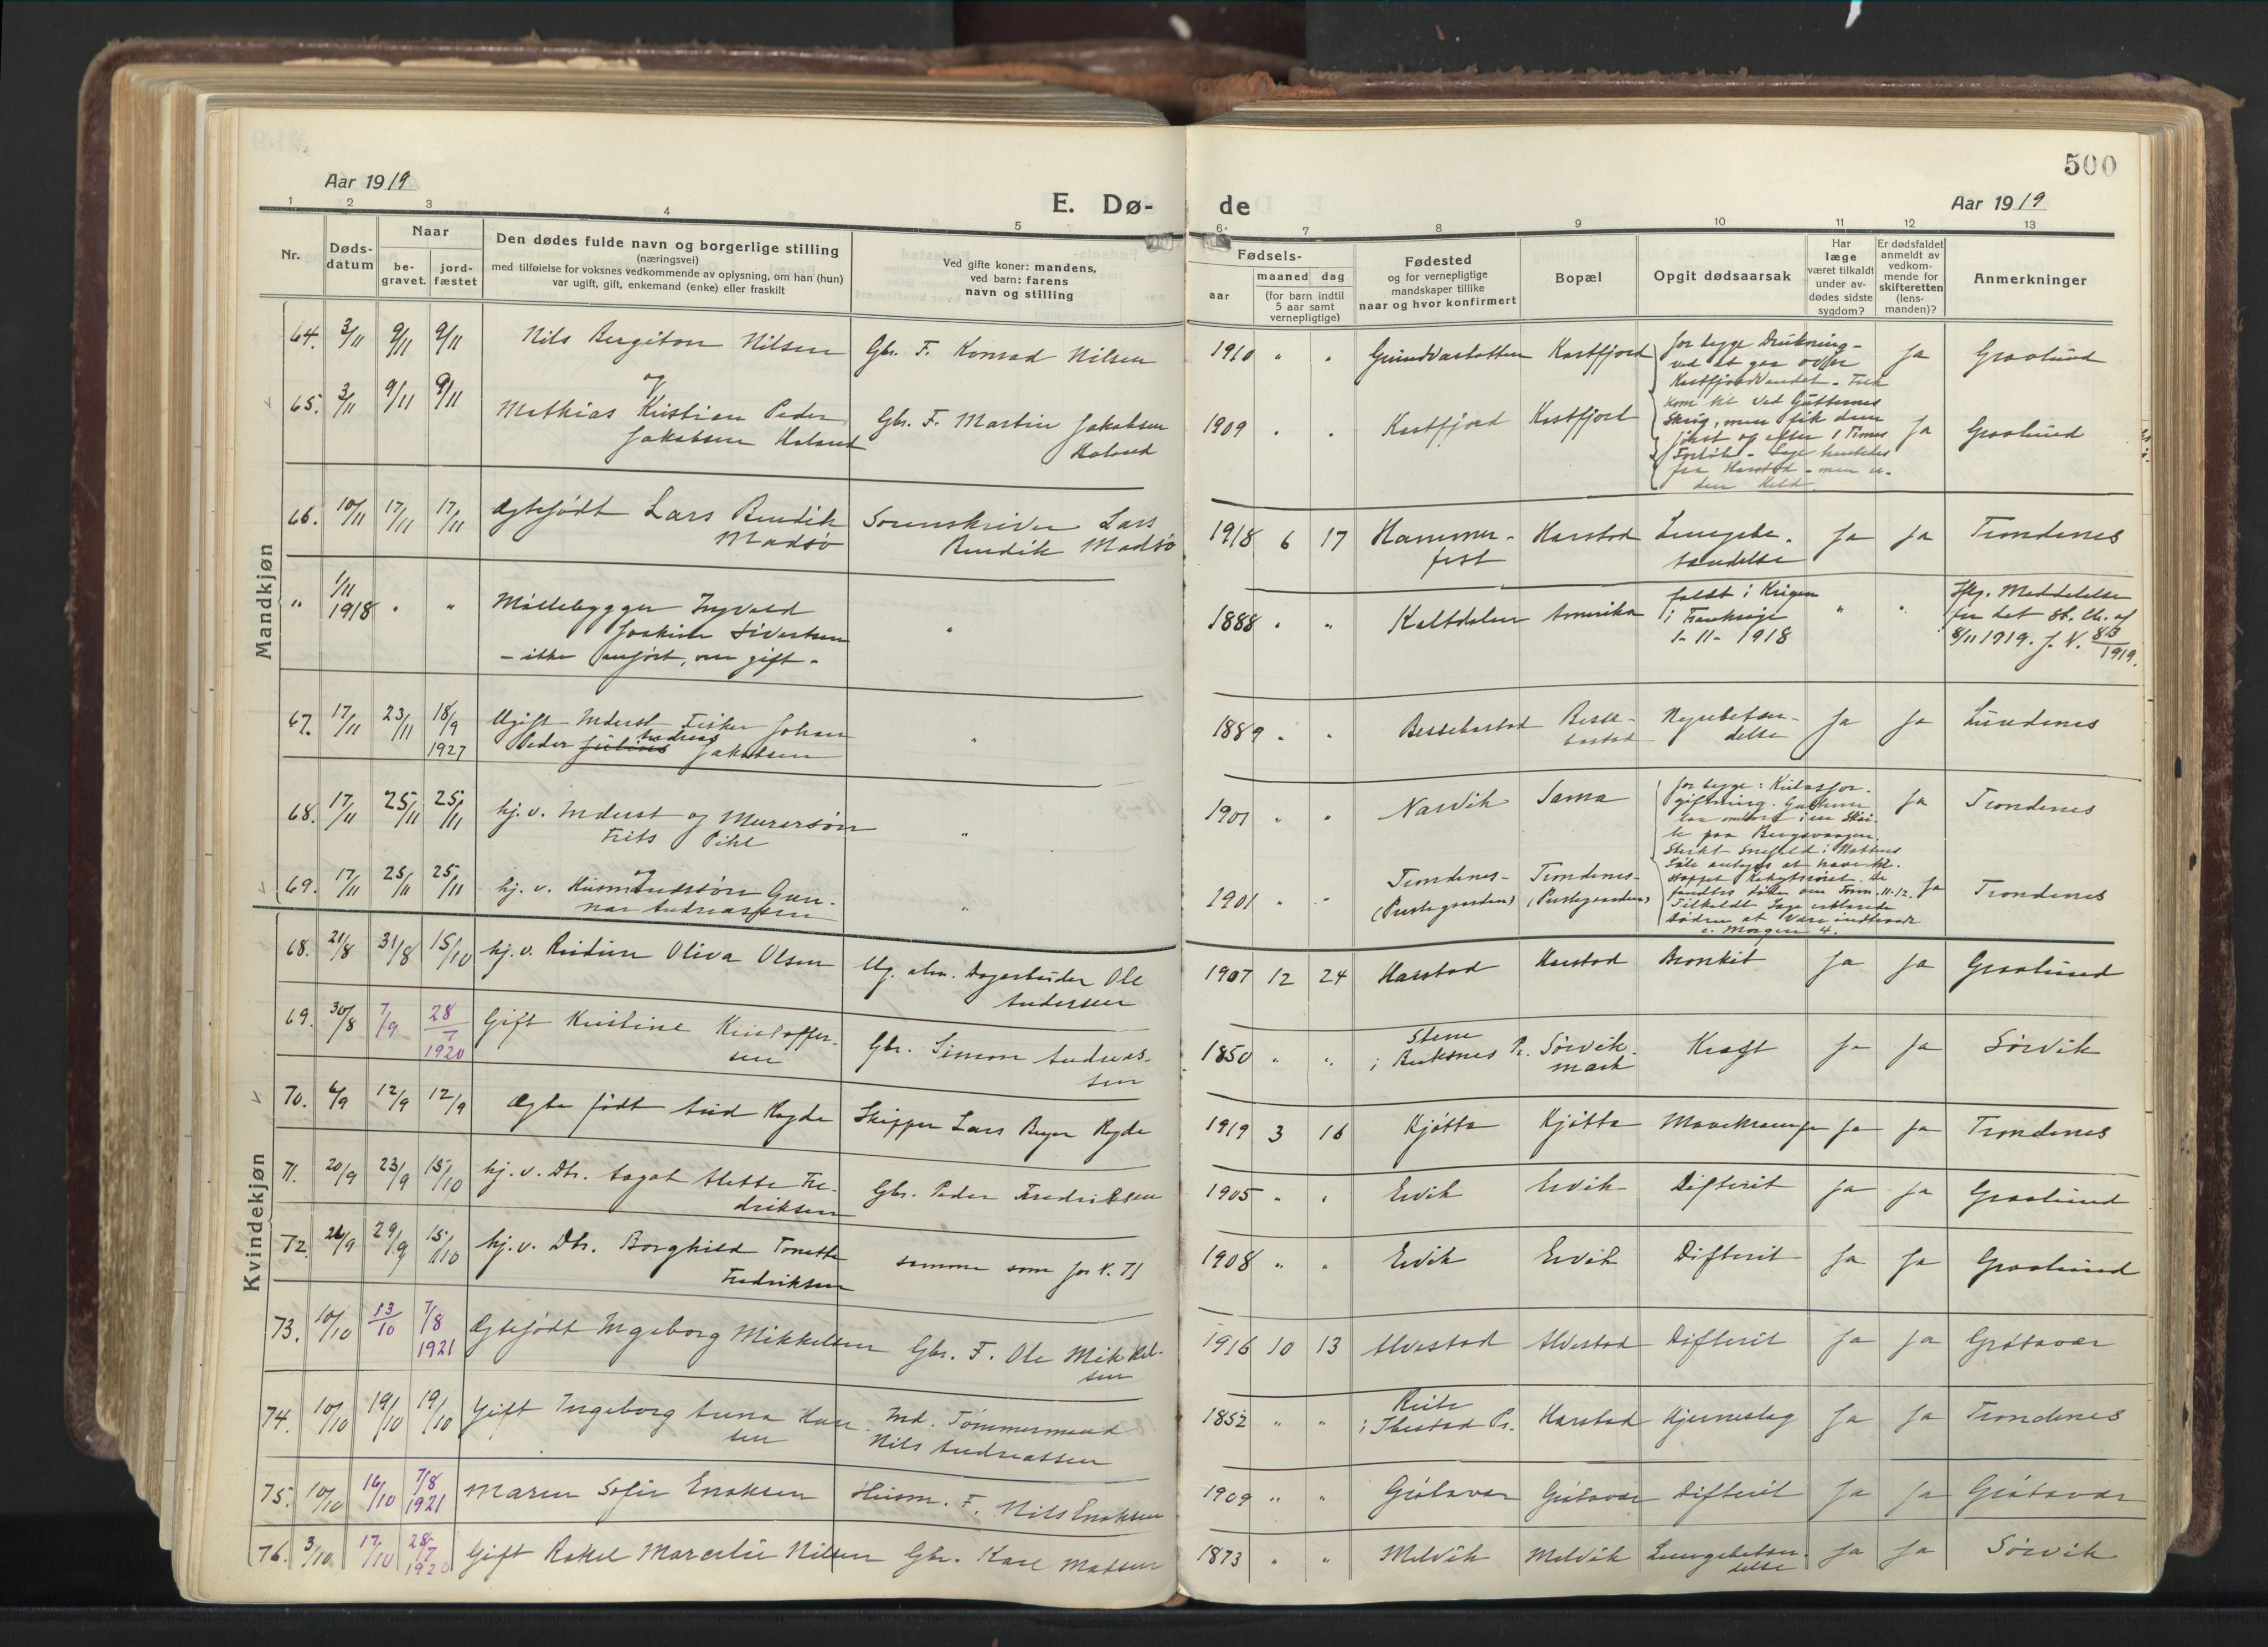 500
Aar 1919
E. Dø-
de
Aar 1919
1 2 3 4 5
6. 7 8 9 10 11 12 13
Nr.
Døds-
datum
Naar
be-
gravet.
jord-
fæstet
Den dødes fulde navn og borgerlige stilling
(næringsvei)
med tilføielse for voksnes vedkommende av oplysning, om han (hun)
var ugift, gift, enkemand (enke) eller fraskilt
Ved gifte koner: mandens,
ved barn: farens
navn og stilling
Fødsels-
aar
maaned dag
(for barn indtil
5 aar samt
vernepligtige)
Fødested
og for vernepligtige
mandskaper tillike
naar og hvor konfirmert
Bopæl
Opgit dødsaarsak
Har
læge
været tilkaldt
under av-
dødes sidste
sygdom?
Er dødsfaldet
anmeldt av
vedkom-
mende for
skifteretten
(lens-
manden)?
Anmerkninger
Mandkjøn
64. 3/11 9/11 9/11 Nils Bergiton Nilsen Gbr. F. Konrad Nilsen 1910 " " Kastfjord for begge Drukning - Ja Graolund
ved at gaa over
Kastfjordvandet - Folk
og
65. 3/11 9/11 9/11 Mathias Kristian Peder Gbr. F. Martin Jakobsen 1909 " " Kastfjord Kastfjord kom til ved Gutternes Ja Graolund
Jakobsen Holand Holand
Skrig, men fik dem
først og efter 1 Times
Forløb - Læge hentedes
fra Harstad - men u-
den Held.
66. 10/11 17/11 17/11 Ægtefødt Lars Bendik Sorenskriver Lars 1918 6 17 Hammer- Harstad Lungebe- Ja Ja Trondenes
Madsø Bendik Madsø fest tændelse
" 1/11 1918 " " Møllebygger Ingvald " 1888 " " Kaltdalen Amerika faldt i Krigen " "
Joakim Sivertsen i Frankrige
- ikke anført, om gift - 1-11-1918
Iflg. Meddelelse
fra det
8/11 1919. J. N. 83/1919.
67. 17/11 23/11 18/9 1927 Ugift Inderst Fisker Johan " 1889 " " Bessebostad Besse- Nyrebetæn- Ja Ja Lundenes
Peder Julius Andreas Jakobsen bostad delse
68. 17/11 25/11 25/11 hj. v. Inderst og Murersøn " 1901 " " Narvik Sama for begge: Kulosfor- Ja Trondenes
Frits Pihl giftning. Gutterne
laa ombord i en Skøi-
te paa Bergsvaagen.
og
69. 17/11 25/11 25/11 hj. v. Husmandssøn Gun- " 1901 " " Trondenes- Trondenes- Ja Trondenes
nar Andreassen (Prestegaarden) (Prestegaarden)
Sterkt Snefald i Nattens
Løb antages at have til-
stoppet
Tilkaldt Læge erklærede
Døden at være indtraadt
c. Morgen 4.
Kvindekjøn
68. 21/8 31/8 15/10 hj. v. Oliva Olsen Ug. alm. Dagarbeider Ole 1907 12 24 Harstad Harstad Bronkit Ja Ja Graolund
Andersen
69. 30/8 7/9 28/7 1920 Gift Kristine Kristoffer- Gbr. Simon Andreas- 1850 " " Stene Sørvik- Kræft Ja Ja Sørvik
sen sen i Buksnes Pr. mark
70. 6/9 12/9 12/9 Ægte født Aud Røgde Skipper Lars Beyer Røgde 1919 3 16 Kjøtta Kjøtta Mavekrampe Ja Ja Trondenes
71. 20/9 23/9 15/10 hj. v. Dtr. Aagot Alette Fre- Gbr. Peder Fredriksen 1905 " " Ervik Ervik Difterit Ja Ja Graolund
driksen
72. 26/9 29/9 15/10 hj. v. Dtr. Borghild Tonette samme som for N. 71 1908 " " Ervik Ervik Difterit Ja Ja Graolund
Fredriksen
73. 10/10 13/10 7/8 1921 Ægtefødt Ingeborg Mikkelsen Gbr. F. Ole Mikkel- 1916 10 13 Alvestad Alvestad Difterit Ja Ja Grøtavær
sen
74. 10/10 19/10 19/10 Gift Ingeborg Anna Han- Ind. Tømmermand 1852 " " Harstad Hjerneslag Ja Ja Trondenes
sen Nils Andreassen i Ibestad Pr.
75. 10/10 16/10 7/8 1921 Maren Sofie Enoksen Husm. F. Nils Enoksen 1909 " " Grøtavær Grøtavær Difterit Ja Ja Grøtavær
76. 3/10 17/10 28/7 1920 Gift Rakel Marselie Nilsen Gbr. Karl Madsen 1873 " " Melvik Melvik Lungebetæn- Ja Ja Sørvik
delse